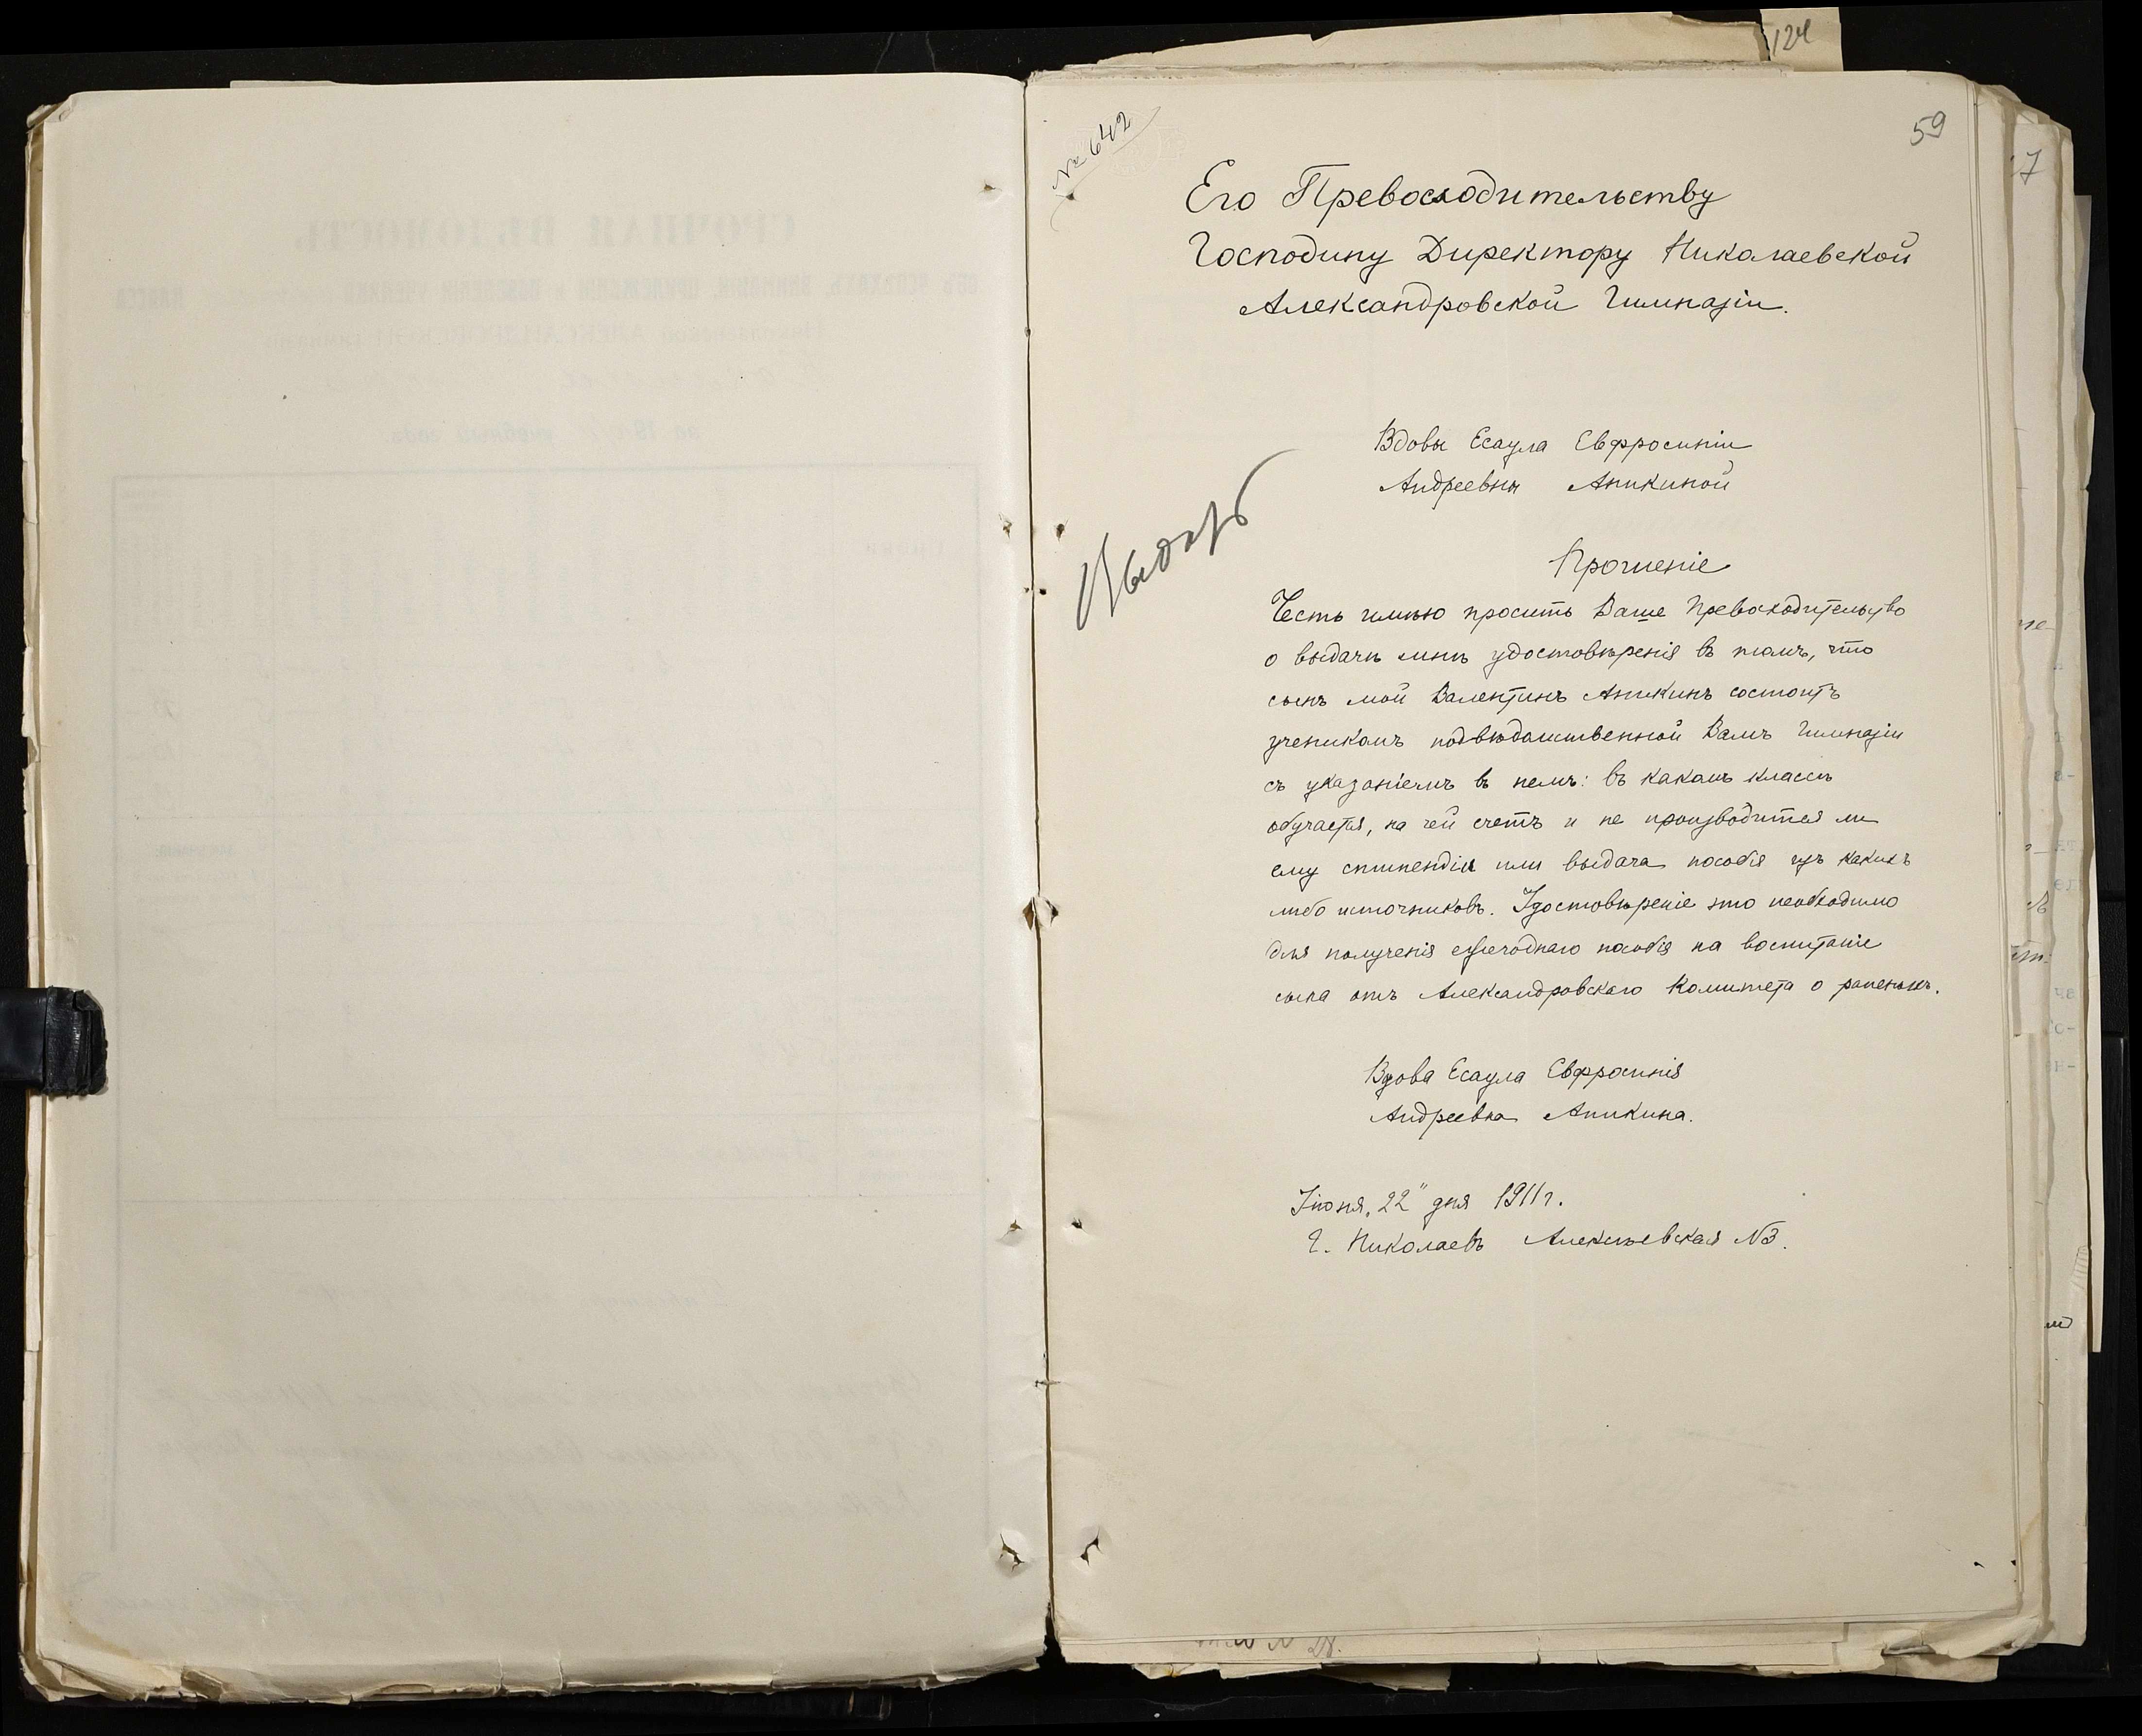 124
59
7
№ 642
Его Превосходительству
Господину Директору Николаевской
Александровской Гимназіи.
Вдовы Есаула Евфросиніи
Андреевны Аникиной
Выдать
Прошеніе
Честь имѣю просить Ваше Превосходительство
о выдачѣ мнѣ удостовѣренія въ томъ, что
сынъ мой Валентинъ Аникинъ состоитъ
ученикомъ подвѣдомственной Вамъ Гимназіи
съ указаніемъ въ немъ: въ какомъ классѣ
обучается, на чей счетъ и не производится ли
ему стипендіи или выдача пособія изъ какихъ
либо источниковъ. Удостовѣреніе это необходимо
для полученія ежегоднаго пособія на воспитаніе
сына отъ Александровскаго Комитета о раненыхъ.
Вдова Есаула Евфросинія
Андреевна Аникина.
Іюня „22" дня 1911 г.
Г. Николаевъ Алексѣевская №3.